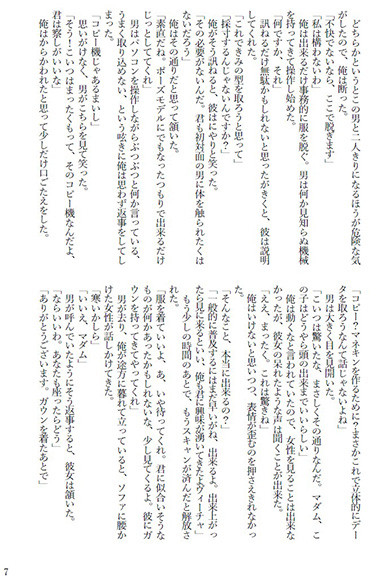 どちらかというとこの男と二人きりになるほうが危険な気
がしたので、俺は断った。
「不快でないなら、ここで脱ぎます」
「私は構わないわ」
俺は出来るだけ事務的に服を脱ぐ。男は何か見知らぬ機械
を持ってきて操作し始めた。
「何ですか、それ」
訊ねるだけ無駄かもしれないと思ったがきくと、彼は説明
してくれた。
「これできみの型を取ろうと思って」
「採寸するんじゃないんですか?」
俺がそう訊ねると、彼はにやりと笑った。
「その必要がないんだ。君も初対面の男に体を触られたくは
ないだろう」
俺はその通りだと思って頷いた。
「素直だね。ポーズモデルにでもなったつもりで出来るだけ
じっとしててくれ」
男はパソコンを操作しながらぶつぶつと何か言っている。
うまく取り込めない、という呟きに俺は思わず返事をしてし
まった。
「コピー機じゃあるまいし」
思いがけなく、男がこちらを見て笑った。
「そう!こいつはまったくもって、そのコピー機なんだよ、
君は察しがいいな」
俺はからかわれたと思って少しだけ口ごたえをした。
「コピー?マネキンを作るために?まさかこれで立体的にデー
タを取ろうなんて話じゃないよね」
男は大きく目を見開いた。
「こいつは驚いたな、まさしくその通りなんだ。マダム、こ
の子はどうやら頭の出来までいいらしい」
俺は動くなと言われていたので、女性を見ることは出来な
かったが、彼女の呆れたような声は聞くことが出来た。
「ええ、まったく。これは驚きね」
俺はいけないと思いつつ、表情が歪むのを押さえきれなかっ
た。
「そんなこと、本当に出来るの?」
「一般的に普及するにはまだ早いがね、出来るよ。出来上がっ
たら見に来るといい、俺も君に興味が湧いてきたよウィーチャ」
もう少しの時間のあとで、もうスキャンが済んだと解放さ
れた。
「服を着ていいよ、あ、いや待ってくれ。君に似合いそうな
ものが何かあったかもしれないな、少し見てくるよ。彼にガ
ウンを持ってきてやってくれ」
男が去り、俺が途方に暮れて立っていると、ソファに腰か
けた女性が話しかけてきた。
「寒いかしら」
「いいえ、マダム」
男が呼んでいたようにそう返事すると、彼女は頷いた。
「ならいいわ。あなたも座ったらどう」
「ありがとうございます。ガウンを着たあとで」
7